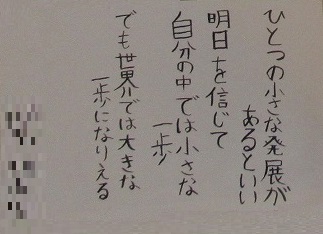 ひとつの小さな発展が
あるといい
明日を信じて
自分の中では小さな
一歩
でも世界では大きな
一歩になりえる